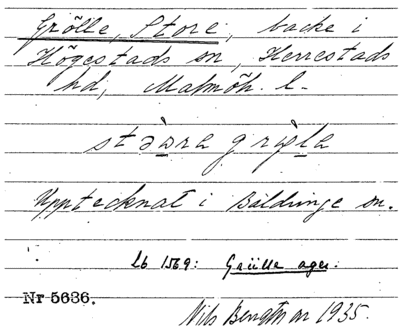 Grölle, Store, backe i
Högestads sn, Herrestads
hd, Malmöh. l.
Upptecknat i Baldringe sn.
Lb 1569: Grülle ager.
Nr 5636.
Nils Bengtsson 1935.